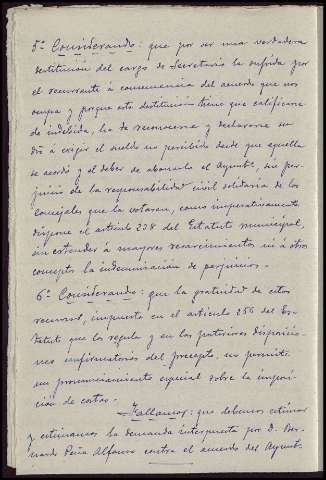 5º Considerando: que por ser una verdadera
destitución del cargo de Secretario la sufrida por
el recurrente á consecuencia del acuerdo que nos
ocupa y porque esta destitución tiene que calificarse
de indebida, ha de reconocerse y declararse su
dró á exigir el sueldo no percibido desde que aquella
se acordó y el deber de abonarlo el Ayuntº, sin per-
juicio de la responsabilidad civil solidaria de los
Concejales que la votaron, como imperativamente
dispone el artículo 238 del Estatuto municipal,
sin extender á mayores resarcimientos ni á otros
conceptos la indemnización de perjuicios.
6º Considerando: que la gratuidad de estos
recursos, impuesta en el artículo 256 del Es-
tatuto que lo regula y en las posteriores disposicio-
nes confirmatorias del precepto, no permite
un pronunciamiento especial sobre la imposi-
ción de costas.
Fallamos: que debemos estimar
y estimamos la demanda interpuesta por D. Ber-
nardo Peña Alfonso contra el acuerdo del Ayuntº